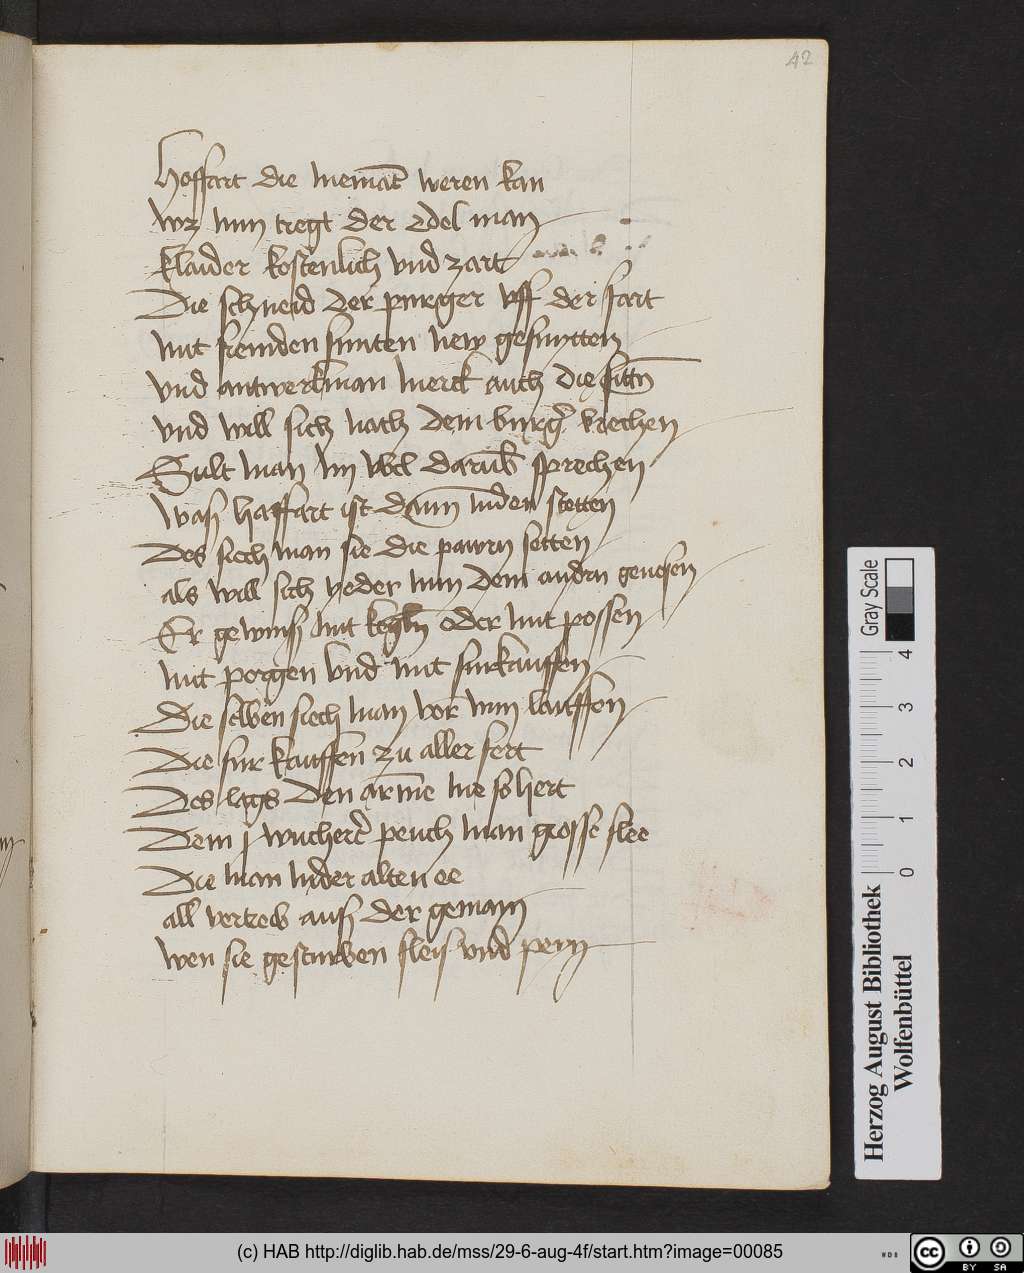 42
Hoffart die niemāt weren kan
wz nun tregt der Edel man
klaider kostenlich vnd zart
Die schneid der purger vff der fart
mit fremden snniten new gesnytten
vnd antwerkman merck auch die sittn̄
vnd will sich nach dem burgr̄ rechen
Sult man im vbel darub̄ sprechen
wasz haffart ist dann inden stetten
Des siech man sie die pawrn setten
als will sich yeder nun dem andrn genosen
Er gewinsz mit kegln oder mit possen
mit porgen vnd mit furkauffen
Die selben siech man vor nun lauffen
Die fur kauffen zu aller fert
Des lags den arme nie so hert
Dem j wucherer peuch man grosse flee
Die man inder alten ee
all vertreib ausz der gemain
wen sie gesturben fleis vnd peyn
Gray Scale
0 1 2 3 4
Herzog August Bibliothek
Wolfenbüttel
(c) HAB http://diglib.hab.de/mss/29-6-aug-4f/start.htm?image=00085
WDB
cc
BY SA